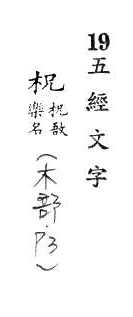 19五經文字
柷
柷敔
樂名
(木部.P3)